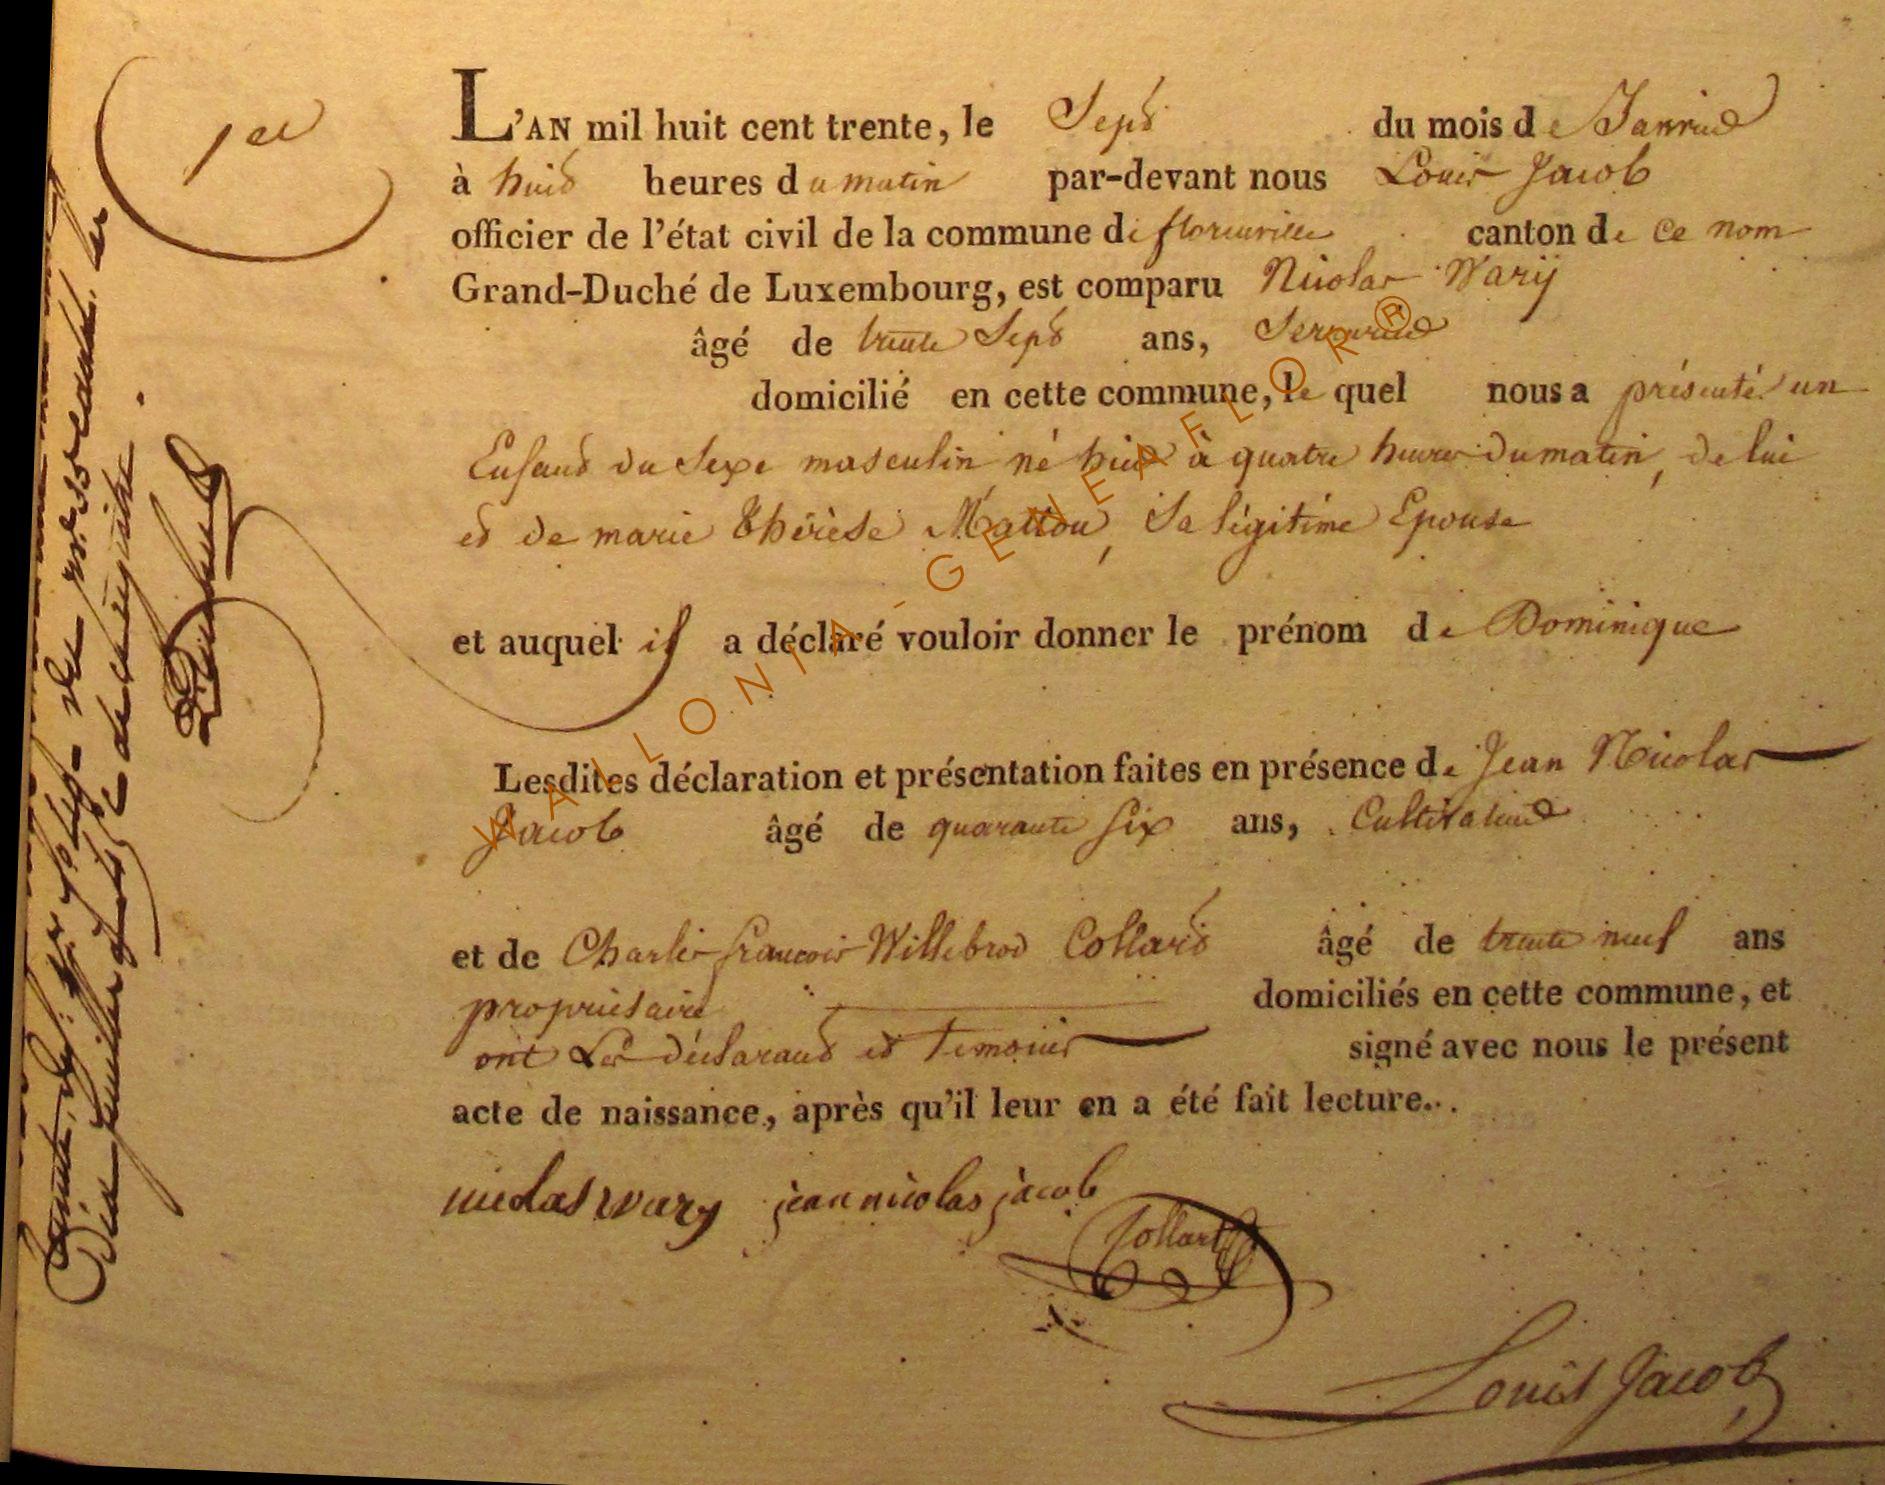 1er
L'AN mil huit cent trente, le Sept du mois de Janvier
à huit heures du matin par-devant nous Louis Jacob
officier de l'état civil de la commune de florenville canton de ce nom
Grand-Duché de Luxembourg, est comparu Nicolas Warij
âgé de trente Sept ans, Serrurier
domicilié en cette commune, le quel nous a présenté un
Enfant du Sexe masculin né hier à quatre heures du matin, de lui
et de marie Thérèse Mattou, Sa légitime Epouse
et auquel il a déclaré vouloir donner le prénom de Dominique
Lesdites déclaration et présentation faites en présence de Jean Nicolas
Jacob âgé de quarante six ans, Cultivateur
et de Charles françois Willebrod Collard âgé de trente neuf ans
propriétaire domiciliés en cette commune, et
ont Les déclarant et Temoins signé avec nous le présent
acte de naissance, après qu'il leur en a été fait lecture...
nicolas wary jean nicolas jacob
Collard
Louis Jacob
WALLONIA-GENEAFLOR®